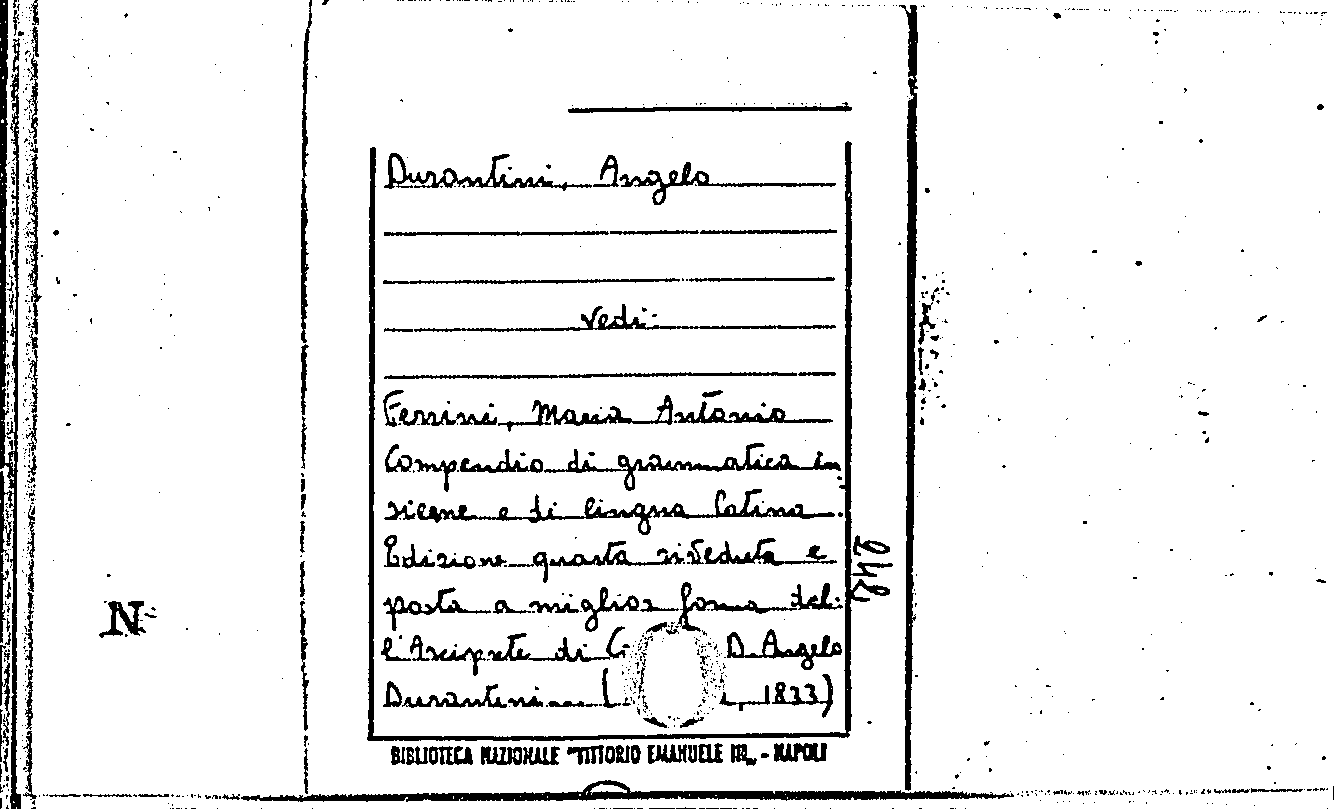 Durantini, Angelo
Vedi:
Ferrini, Maria Antonio
Compendio di grammatica in
sieme e di lingua latina.
Edizione quarta riveduta e
posta a miglior forma del-
l'Arciprete di D. Angelo
Durantini... ( , 1833)
242
N
BIBLIOTECA NAZIONALE "VITTORIO EMANUELE III„ - NAPOLI